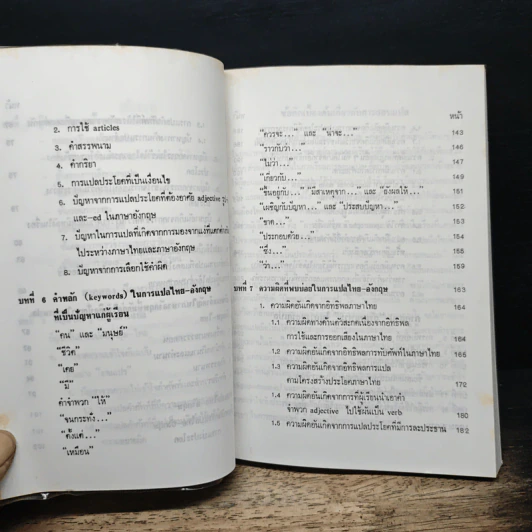 2. การใช้ articles
3. คำสรรพนาม
4. คำกริยา
5. การแปลประโยคที่เป็นเงื่อนไข
6. ปัญหาจากการแปลประโยคที่ต้องอาศัย adjective รูป
และ -ed ในภาษาอังกฤษ
7. ปัญหาในการแปลที่เกิดจากการมองจากแง่ที่แตกต่างกัน
ไประหว่างภาษาไทยและภาษาอังกฤษ
8. ปัญหาจากการเลือกใช้คำผิด
บทที่ 6 คำหลัก (keywords) ในการแปลไทย-อังกฤษ
ที่เป็นปัญหาแก่ผู้เรียน
"คน" และ "มนุษย์"
"ชีวิต"
"เคย"
"มี"
คำจำพวก "ให้"
"จนกระทั่ง..."
"ตั้งแต่..."
"เหมือน"
หน้า
"ควรจะ..." และ "น่าจะ..." 143
"ราวกับว่า..." 145
"ไม่ว่า..." 146
"เกี่ยวกับ..." 149
"ขึ้นอยู่กับ..." "มีสาเหตุจาก..." และ "ยังผลให้..." 151
"เผชิญกับปัญหา..." และ "ประสบปัญหา..." 152
"ขาด..."
"ประกอบด้วย..."
"ซึ่ง..."
"ว่า..." 159
บทที่ 7 ความผิดที่พบบ่อยในการแปลไทย-อังกฤษ 163
1. ความผิดอันเกิดจากอิทธิพลภาษาไทย 164
1.1 ความผิดทางด้านตัวสะกดเนื่องจากอิทธิพล
การใช้และการออกเสียงในภาษาไทย 164
1.2 ความผิดอันเกิดจากอิทธิพลการทับศัพท์ในภาษาไทย 166
1.3 ความผิดอันเกิดจากอิทธิพลการแปล
ตามโครงสร้างประโยคภาษาไทย 172
1.4 ความผิดอันเกิดจากการที่ผู้เรียนนำเอาคำ
จำพวก adjective ไปใช้ผันเป็น verb 180
1.5 ความผิดอันเกิดจากการแปลประโยคที่มีการละประธาน 182